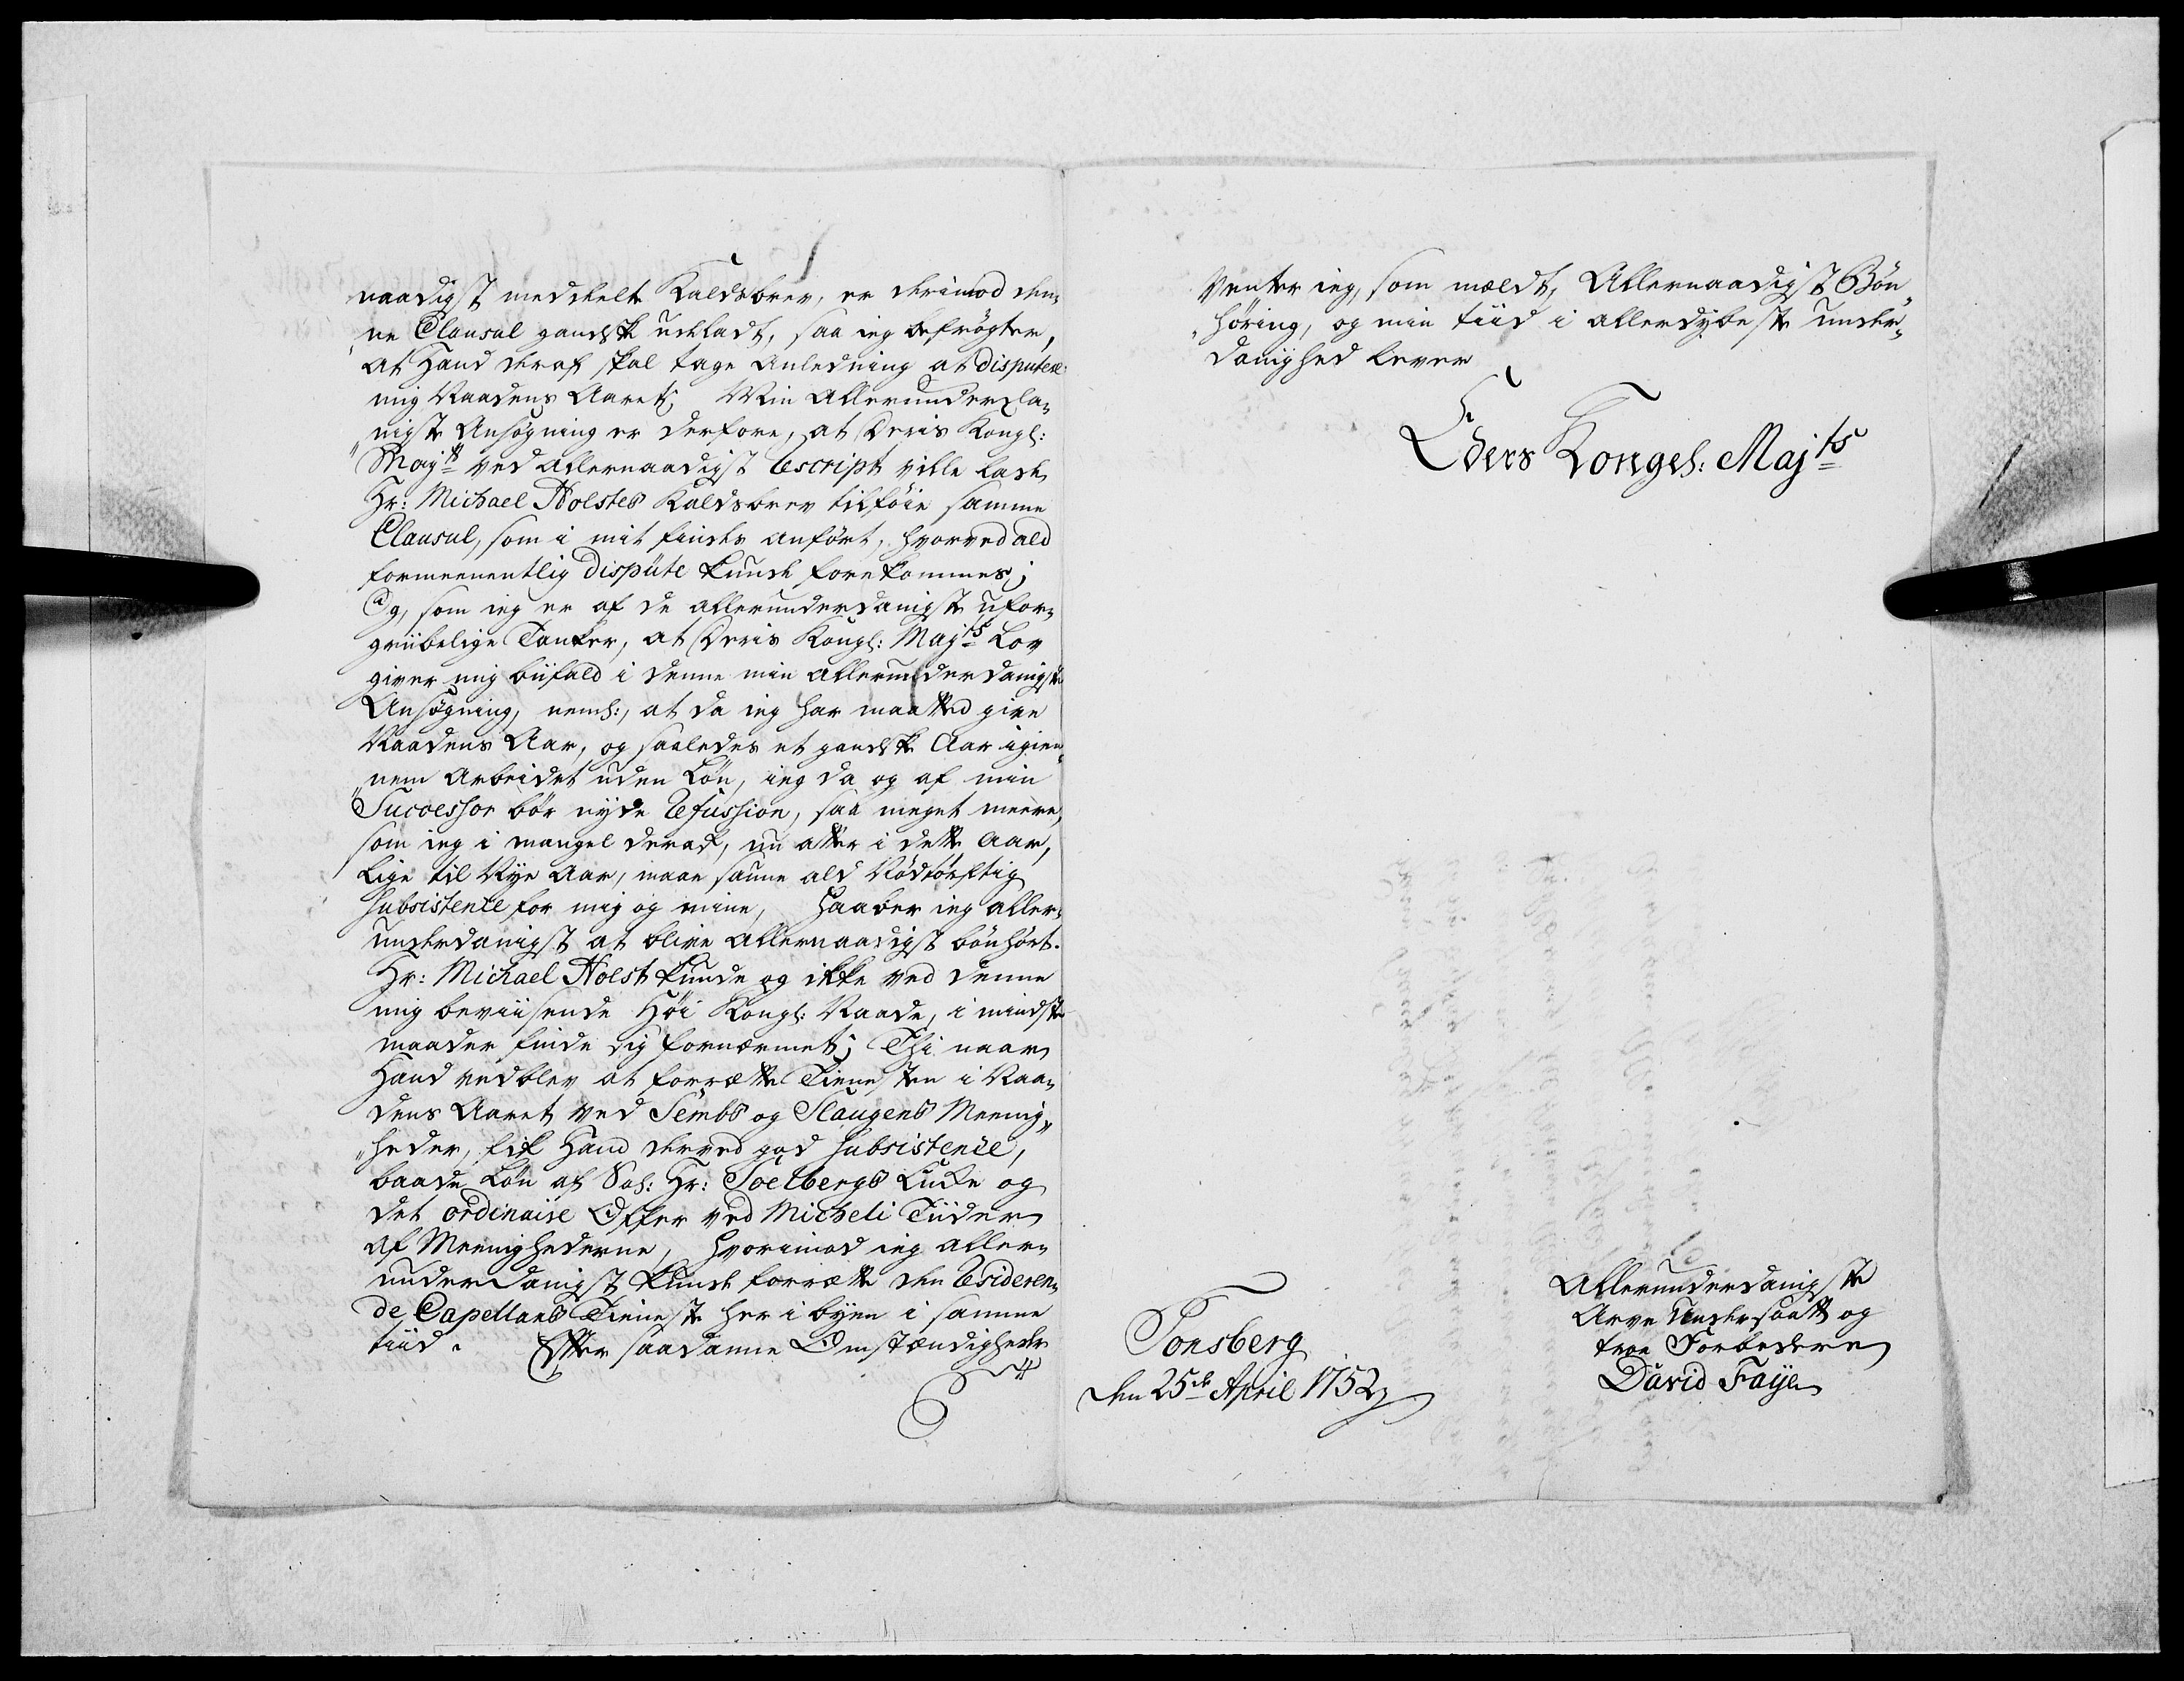 naadigst meddeelte Kaldsbrev, er derimod den¬
ne Clausul gandske udeladt, saa ieg befrögter,
at Hand deraf skal tage Anledning at disputere
mig Naadens Aaret; Min Allerunderda¬
nigste Ansögning er derfore, at Deris Kongl:
Majts ved Allernaadigst Rescript ville lade
Hr: Michael Holstes Kaldsbrev tilföie samme
Clausul, som i mit findes anfört, hvorved ald
formeenentlig Dispüte kunde forekommes;
Og, som ieg er af de allerunderdanigste ufor¬
griibelige Tanker, at Deris Kongl: Majts Lov
giver mig biifald i denne min allerunderdanigste
Ansögning, neml:, at da ieg har maatted give
Naadens Aar, og saaledes et gandske Aar igien¬
nem Arbeidet uden Lön, ieg da og af min
Successor bör nyde Refussion, saa meget meere,
som ieg i mangel deraf, nu atter i dette Aar,
lige til Nye Aar, maae saune ald Nödtörftig
Subsistence for mig og mine, haaber ieg aller¬
underdanigst at blive allernaadigst bönhört.
Hr: Michael Holst kunde og ikke ved denne
mig beviisende Höi Kongl: Naade, i mindste
maader finde sig fornærmet; Thi naar
Hand vedblev at forrætte Tienesten i Naa¬
dens Aaret ved Sembs og Slaugens Meenig¬
heder, fik Hand derved god Subsistence,
baade Lön af Sal: Hr: Soelbergs Encke og
det ordinaire Offer ved Micheli Tiider
af Meenighederne, hvorimod ieg aller¬
underdanigst kunde forrætte den Resideren¬
de Capellans Tieneste her i byen i samme
tiid. Efter saadanne Omstændigheder
Venter ieg, som meldt, Allernaadigst Bön¬
höring, og min tiid i allerdybeste under¬
danighed lever
Eders Kongel: Majts
Allerunderdanigste
Arve Undersaatt og
troe Forbedere
David Faÿe
Tonsberg
den 25de April 1752